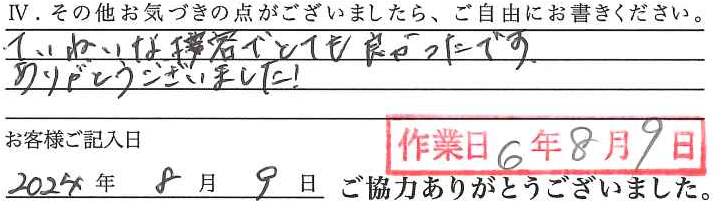 Ⅳ.その他お気づきの点がございましたら、ご自由にお書きください。
ていねいな接客でとても良かったです。
ありがとうございました!
お客様ご記入日
作業日 6年8月9日
2024年 8月 9日 ご協力ありがとうございました。